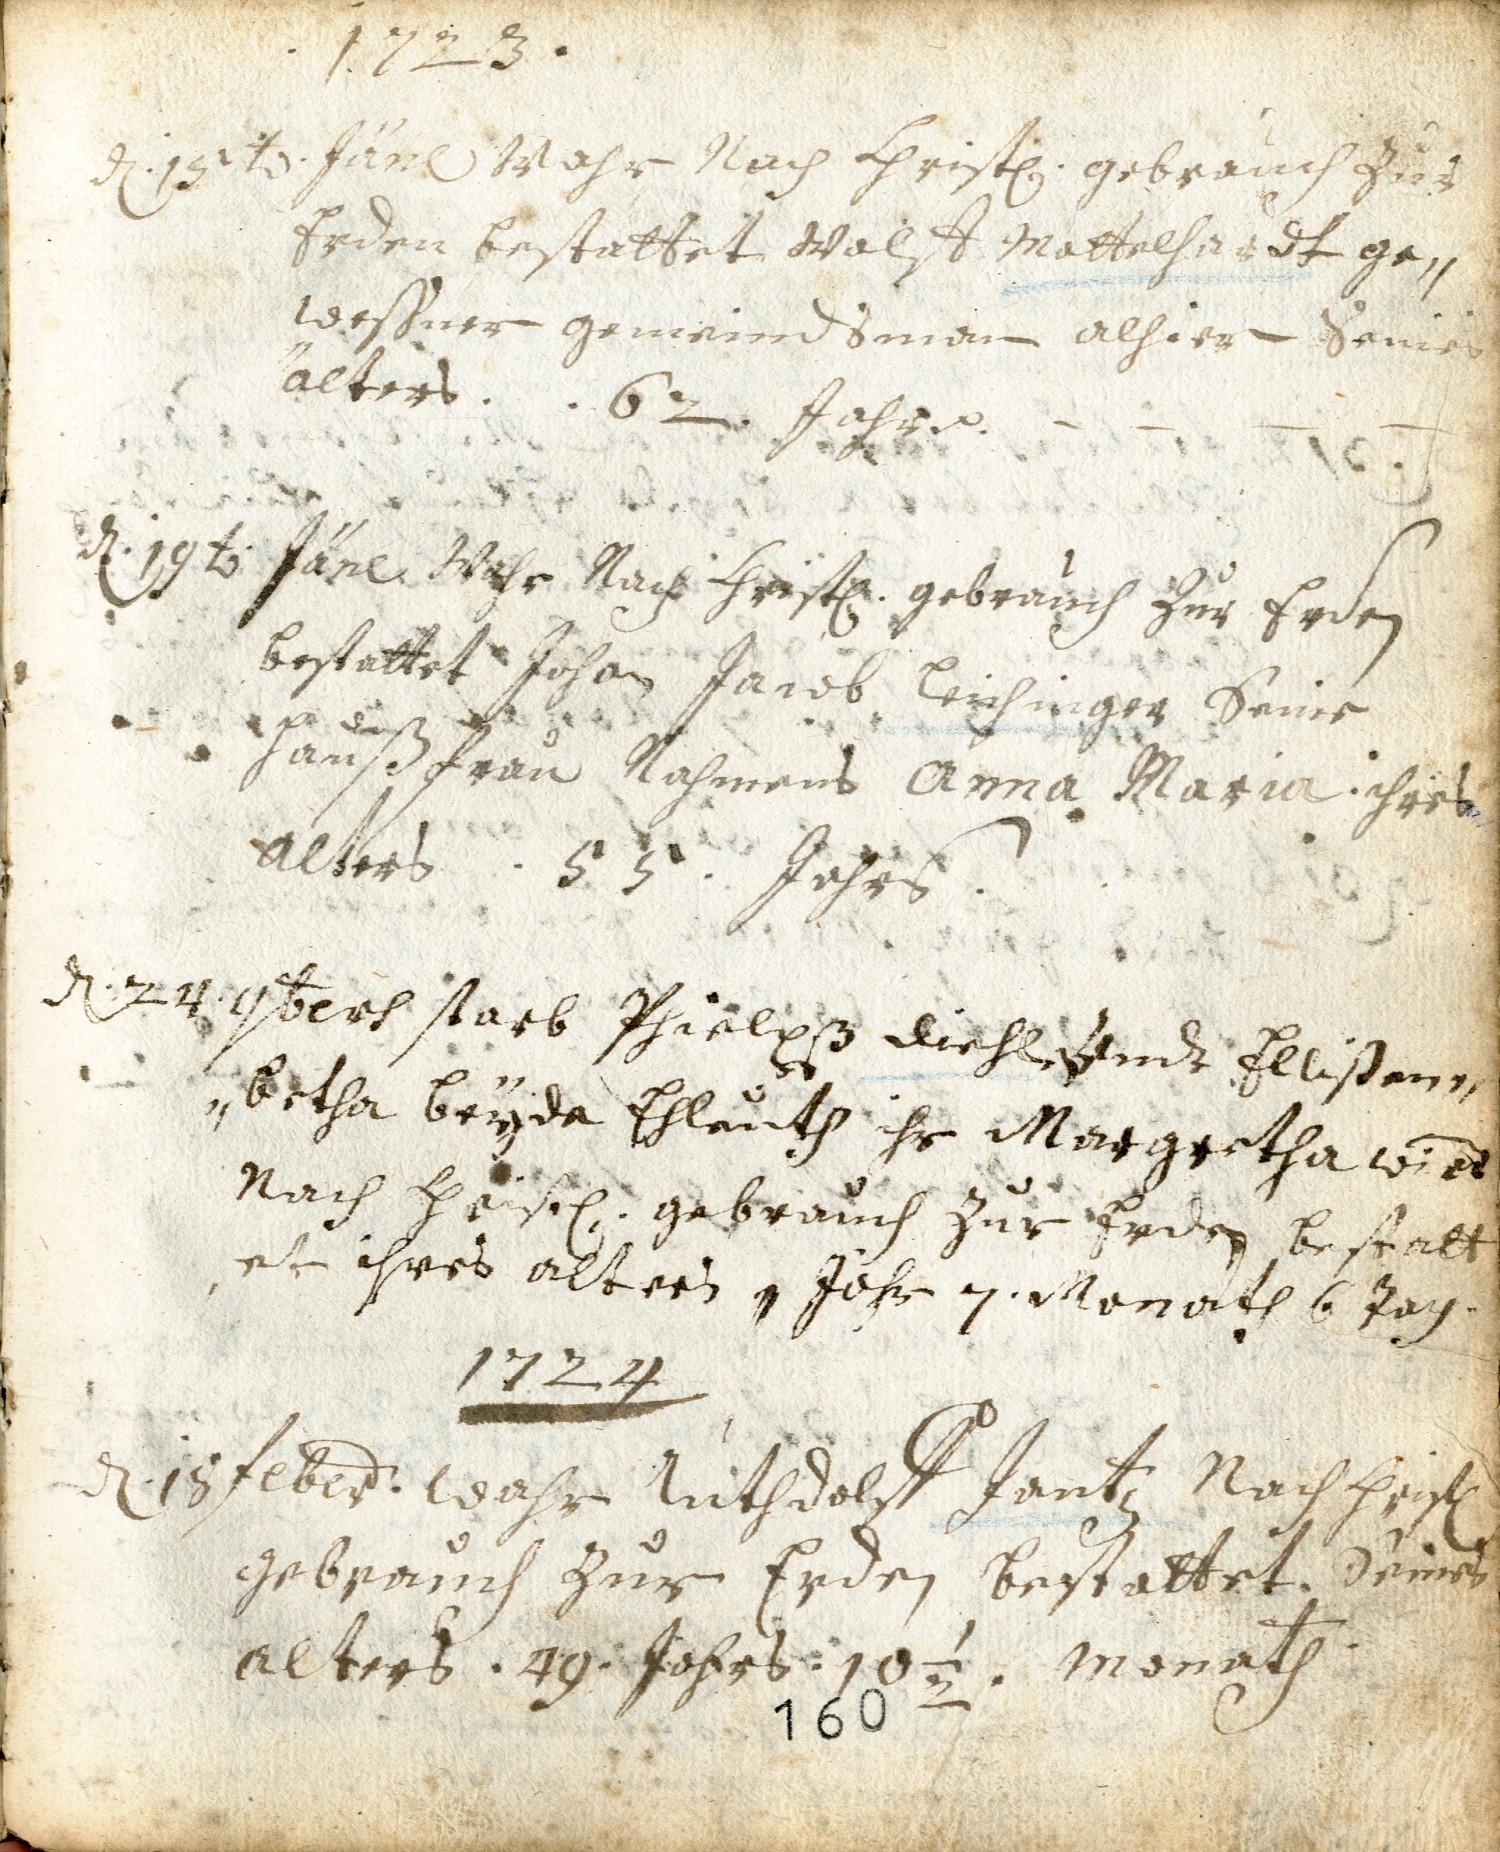 . 1723 .
d. 15t. Jäne Wahr Nach Christl. gebrauch Zur
Erden bestattet Wolff Mottelhardt ge„
wessner gemeindsman alhier Seines
alters . . 62 . Jahre. – – – –
d. 19t. Jäne Wahr Nach Christl. gebrauch Zur Erden
bestattet Johan Jacob Leichinger Seine
haußfrau Nahmens Anna Maria . ihres
alters . 55 . Jahrs .
d. 24. 9bers starb Phielpß diehl Ellißaˉ„
„betha beÿda Ehleuth ihr Margretha wird
Nach Christl. gebrauch Zur Erden bestatt
et ihres alters 1 Jahr 7. Monath 6 Tag.
1724
d. 18 feber. wahr Ruthdolff Jantz Nach Christl
gebrauch Zur Erden bestattet. Seines
alters . 49. Jahrs . 10 1/2 . Monath .
160